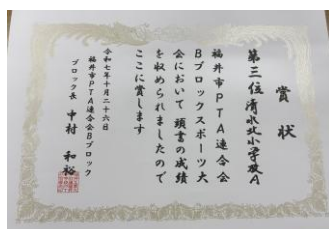 賞状
第三位 清水北小学校A
福井市PTA連合会
Bブロックスポーツ大
会において頭書の成績
を収められましたので
ここに賞します
令和七年十月二十六日
福井市PTA連合会Bブロック
ブロック長 中村 和裕